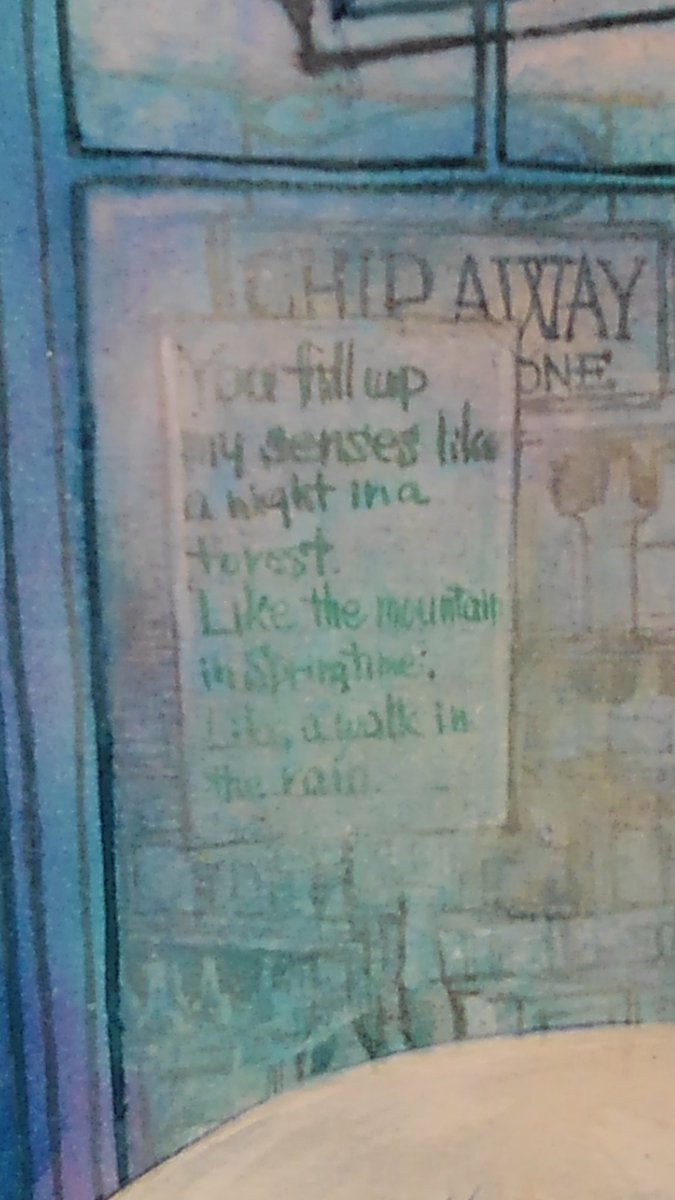 CHIP AWAY
ONE
You fill up
my senses like
a night in a
forest.
Like the mountain
in Springtime.
Like, a walk in
the rain.